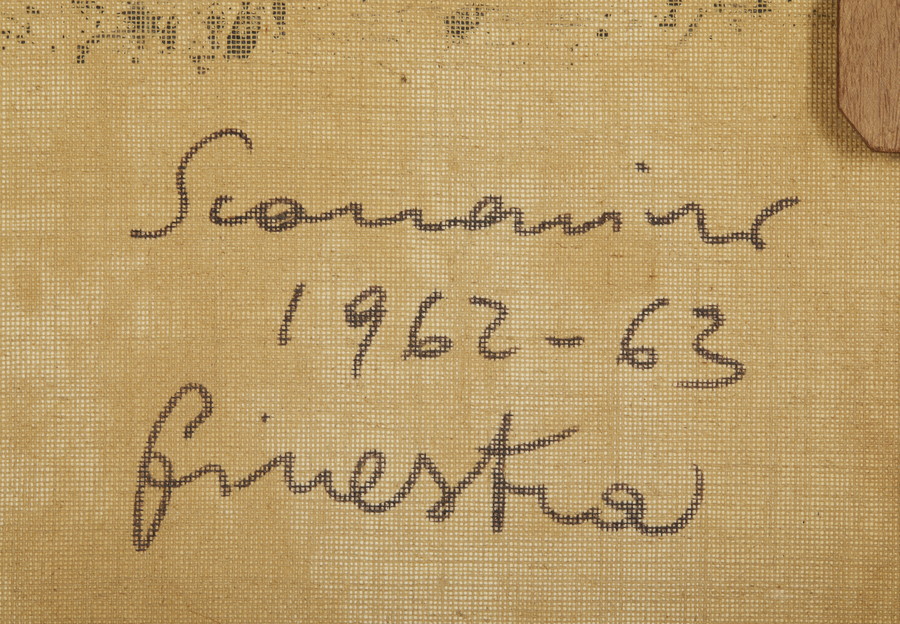 Scanavino
1962-63
finestra